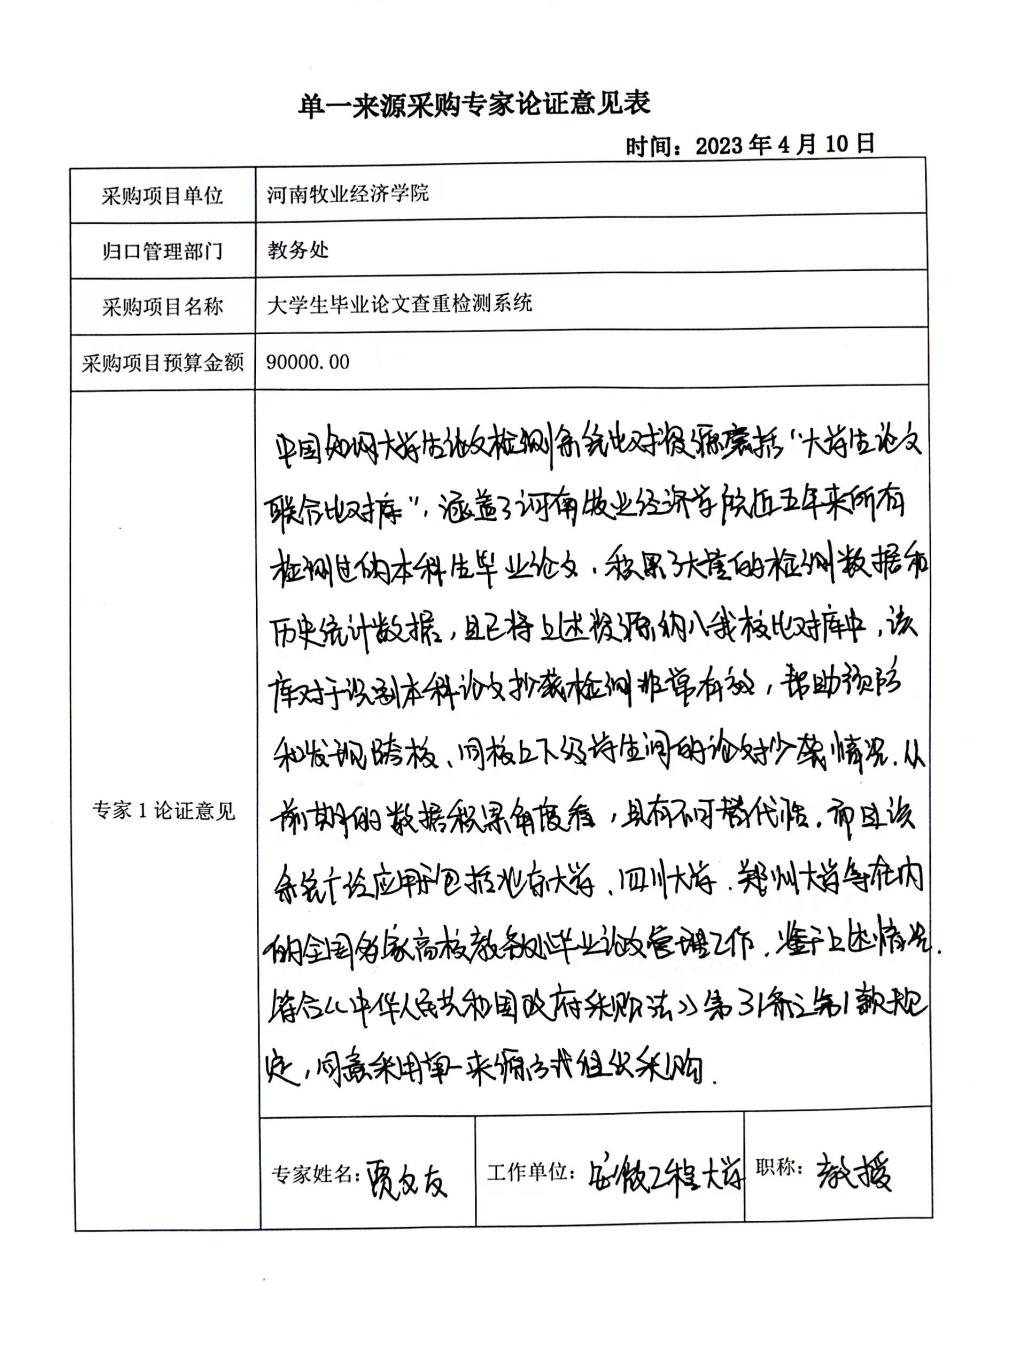 单一来源采购专家论证意见表
时间：2023年4月10日
采购项目单位 河南牧业经济学院
归口管理部门 教务处
采购项目名称 大学生毕业论文查重检测系统
采购项目预算金额 90000.00
专家1论证意见
中国知网大学生论文检测系统比对资源囊括“大学生论文
联合比对库”，涵盖了河南牧业经济学院近五年来所有
检测过的本科生毕业论文，积累了大量的检测数据和
历史统计数据，且已将上述资源纳入我校比对库中，该
库对于识别本科论文抄袭检测非常有效，帮助预防
和发现跨校、同校上下级学生间的论文抄袭情况。从
前期的数据积累角度看，具有不可替代性。而且该
系统广泛应用于包括北京大学、四川大学、郑州大学等在内
的全国多家高校教务处毕业论文管理工作。鉴于上述情况，
符合《中华人民共和国政府采购法》第31条之第1款规
定，同意采用单一来源方式组织采购.
专家姓名：贾文友 工作单位：安徽工程大学 职称：教授